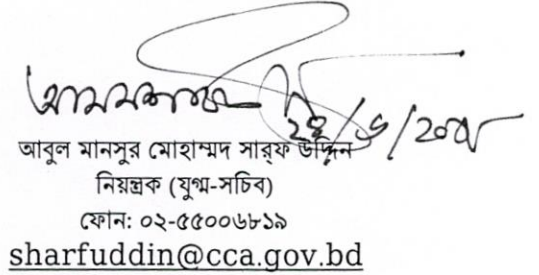 আবুল মানসুর মোহাম্মদ সার্‌ফ উদ্দিন
নিয়ন্ত্রক (যুগ্ম-সচিব)
ফোন: ০২-৫৫০০৬৮১৯
sharfuddin@cca.gov.bd